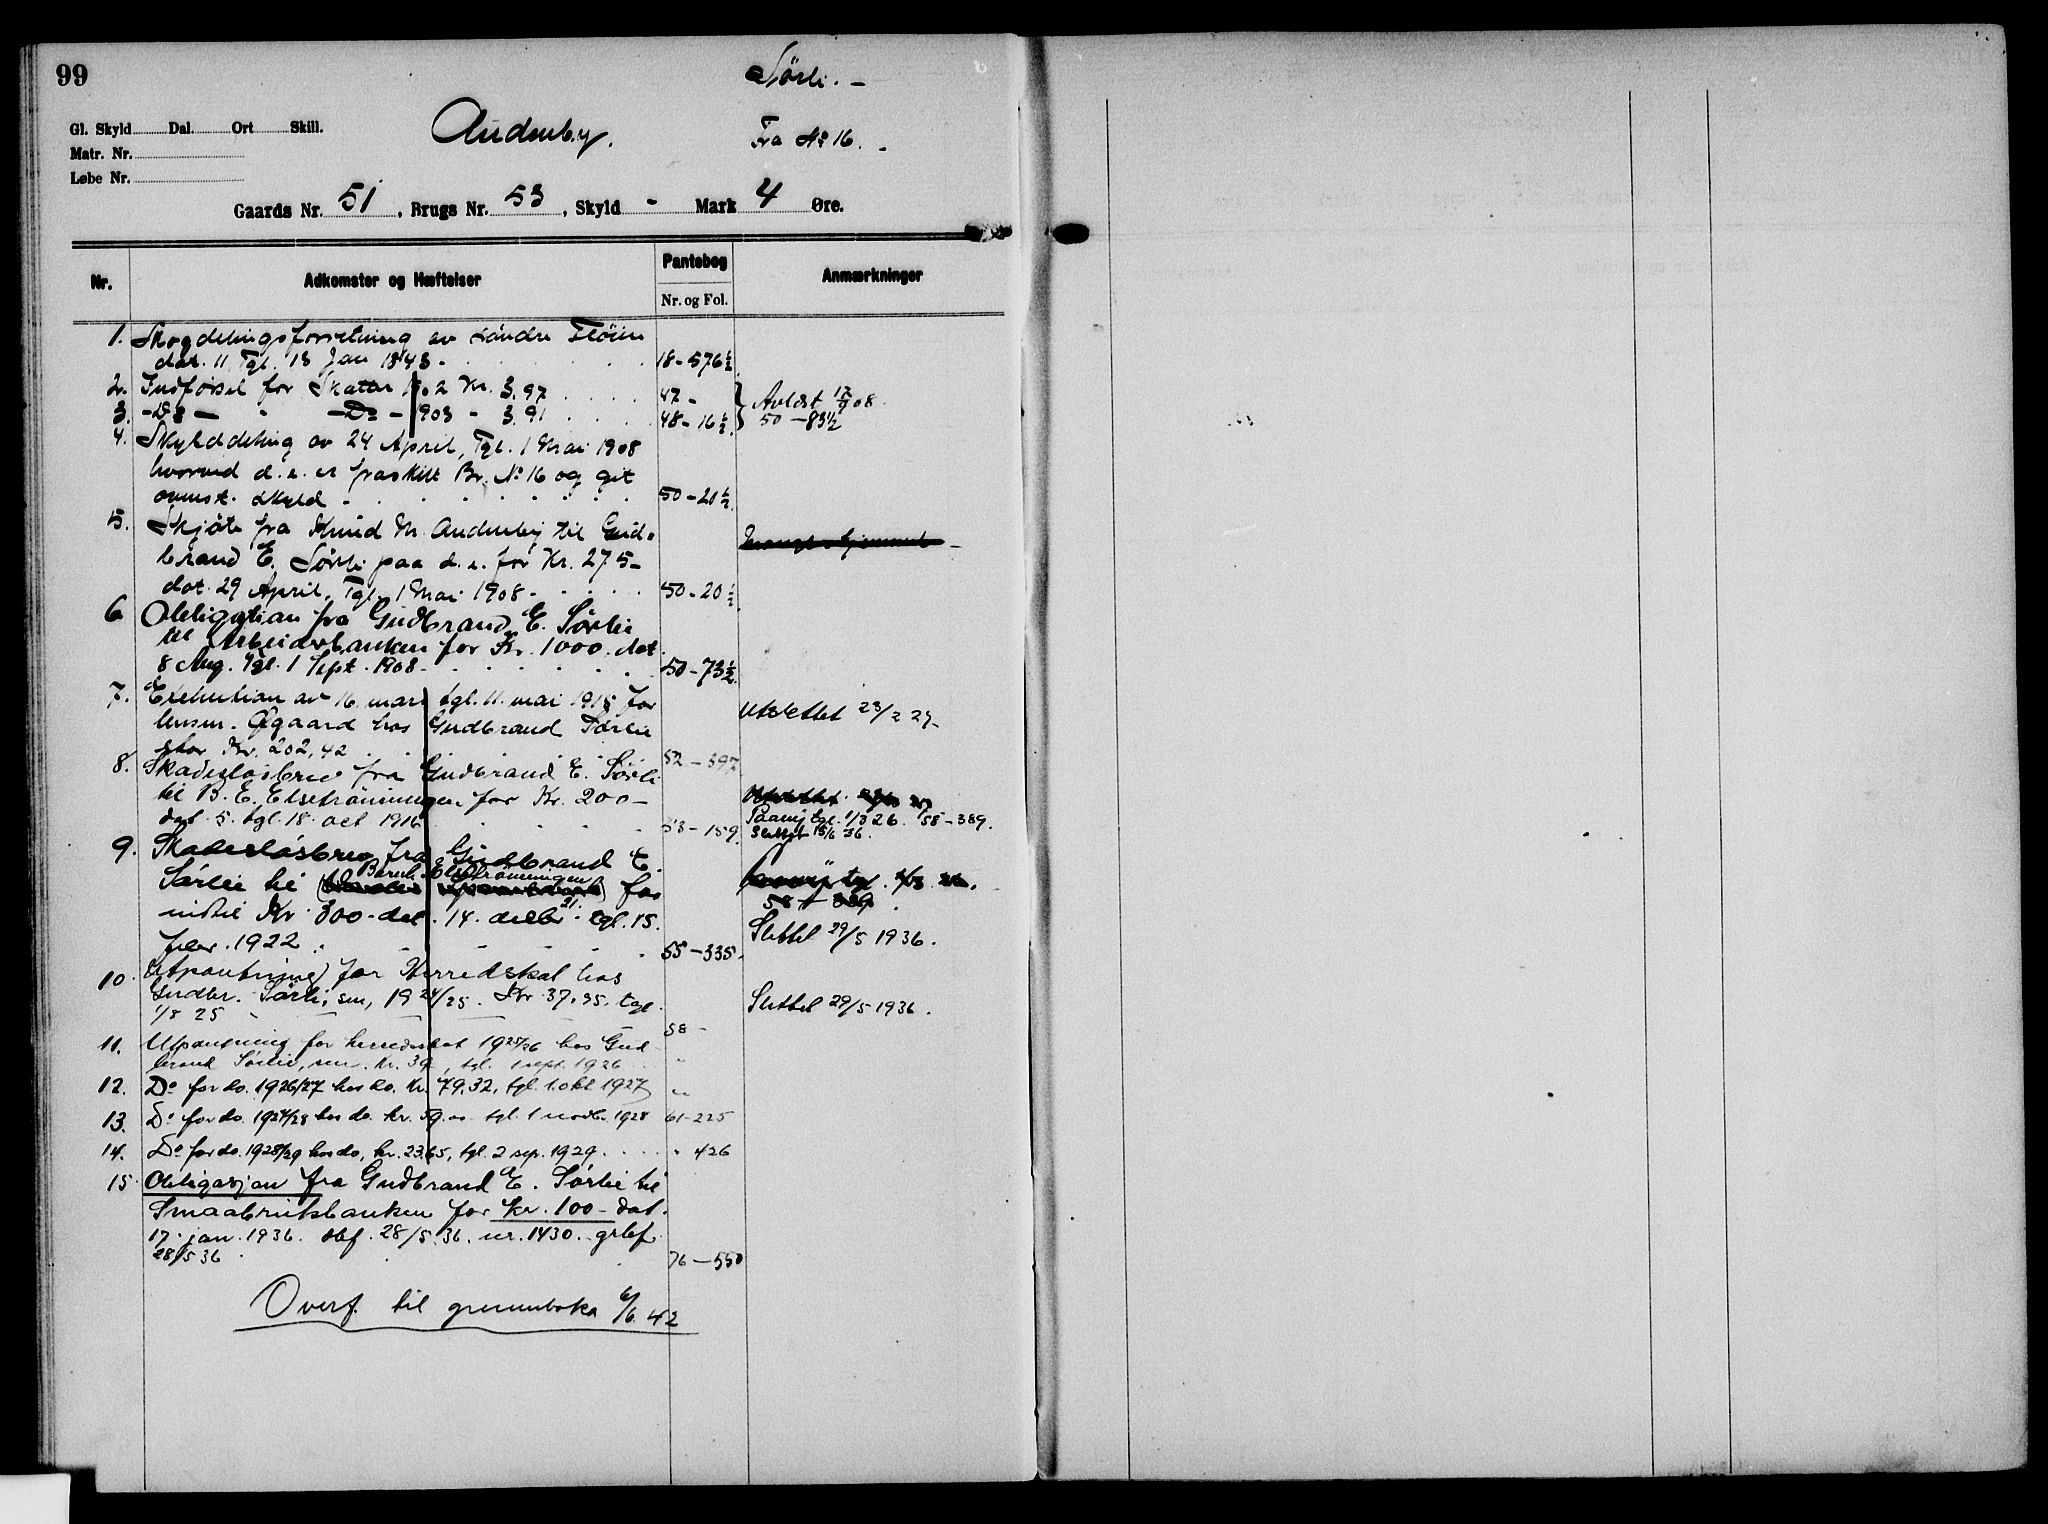 99
Sørli. -
Gl. Skyld Dal. Ort Skill.
Audenby.
Fra No 16. -
Matr. Nr.
Løbe Nr.
Gaards Nr. 51, Brugs Nr. 53, Skyld - Mark 4 Øre.
Nr. Adkomster og Hæftelser Pantebog Anmærkninger
Nr. og Fol.
1. Skogdelingsforretning av søndre Fløien
dat. 11 Tgl. 13 Jan 1843 - 18-576½
2. Indførsel for Skatter 1902 Kr. 3,97 47 - Avløst 12/9 08.
3. -Do- " -Do- 1903 - 3,91 48-16½. 50-83½
4. Skylddeling av 24 April, Tgl. 1 Mai 1908
hvorved d. e. er fraskilt Br. No 16 og git
ovenst. skyld - 50-20½.
5. Skjøte fra Knud M. Audenby til Gud=
brand E. Sørli paa d. e. for Kr. 275-
dat. 29 April, Tgl. 1 Mai 1908 - 50-20½.
6 Obligation fra Gudbrand E. Sørlie
til Arbeiderbanken for Kr. 1000. dat.
8 Aug. Tgl. 1 Sept. 1908 - 50-73½.
7. Exekution av 16. mars tgl. 11. mai 1915 for
lensm. Øgaard hos Gudbrand Sørlie
stor Kr. 202,42 52-397 Utslettet 23/2 27-
8. Skadesløsbrev fra Gudbrand E. Sørli
til B. E. Elsetrønningen for Kr. 200-
dat. 5. tgl. 18. oct 1916 53-159. Paany tgl. 1/3 26. 58-389.
Slettet 15/6 36.
9. Skadesløsbrev fra Gudbrand E.
Bernh. Elsetrønningen
Sørlie til for
indtil Kr 300-dat. 14. decbr. 21. tgl. 15. 58 - 389.
febr. 1922. 55-335. Slettet 29/5 1936.
10. Utpantning for Herredskat hos
Gudbr. Sørli, sen, 1924/25. Kr 37,35. tgl. Slettet 29/5 1936.
1/8 25 58-
11. Utpantning for herredsskat 1925/26 hos Gud
brand Sørlie, sen. Kr. 39, tgl. 1 sept. 1926 "
12. Do for do. 1926/27 hos do. Kr. 79,32, tgl. 1. okt 1927 "
13. Do for do. 1927/28 hos do. kr. 59. tgl. 1 novbr. 1928 61-225
14. Do for do. 1928/29 hos do, kr. 23,65, tgl. 2 sep. 1929. " 426
15. Obligasjon fra Gudbrand E. Sørlie til
Smaabrukbanken for kr. 100- dat.
17. jan. 1936. 28/5. 36. nr. 1430.
28/5 36 76-550
Overf. til grunnboka 6/6. 42